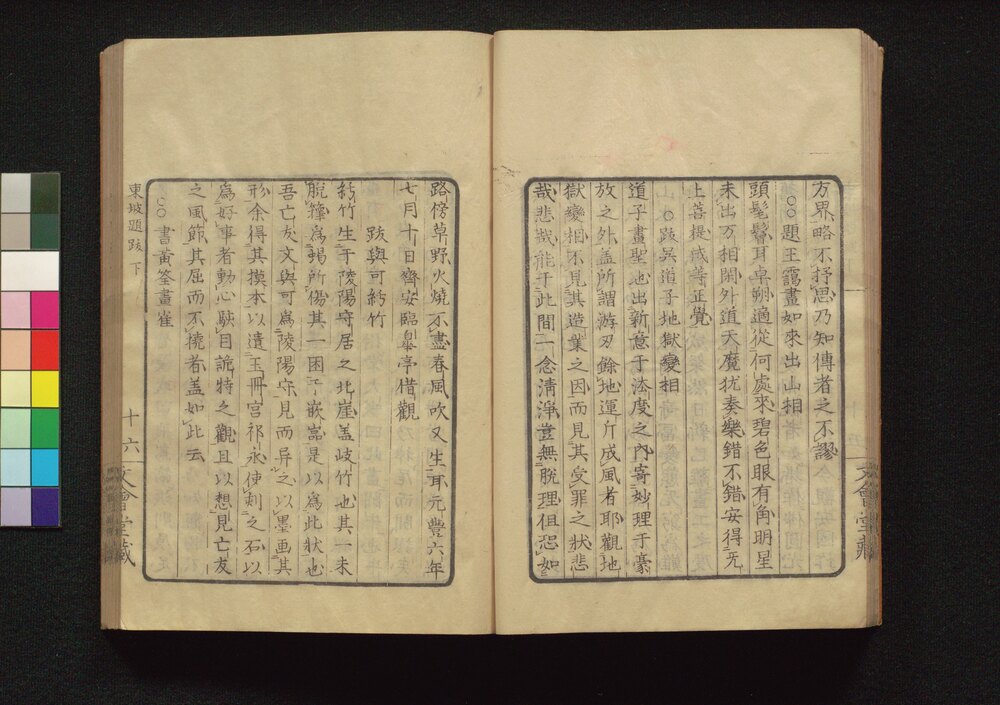 方界略不抒思乃知傳者之不謬
○○題王靄畫如來出山相
頭髼鬙耳卓朔適從何處來碧色眼有角明星
未出万相閑外道天魔犹奏樂錯不錯安得无
上菩提成等正覺
○跋吳道子地獄變相
道子畫聖也出新意于法度之内寄妙理于豪
放之外盖所謂游刃餘地運斤成風者耶觀地
獄變相不見其造業之因而見其受罪之状悲
哉悲哉能于此間一念清淨豈無脱理但恐如
文會堂藏
路傍草野火燒不盡春風吹又生耳元豐六年
七月十日齊安臨皋亭借觀
跋與可紆竹
紆竹生于陵陽守居之北崖盖岐竹也其一未
脱籜為蝎所傷其一困于嵌嵓是以為此狀也
吾亡友文與可為陵陽守見而异之以墨画其
形余得其摸本以遺玉冊宫祁永使刺之石以
為好事者動心駭目詭特之觀且以想見亡友
之風節其屈而不撓者盖如此云
○○書黃筌畫雀
東坡題跋下
十六
文會堂藏